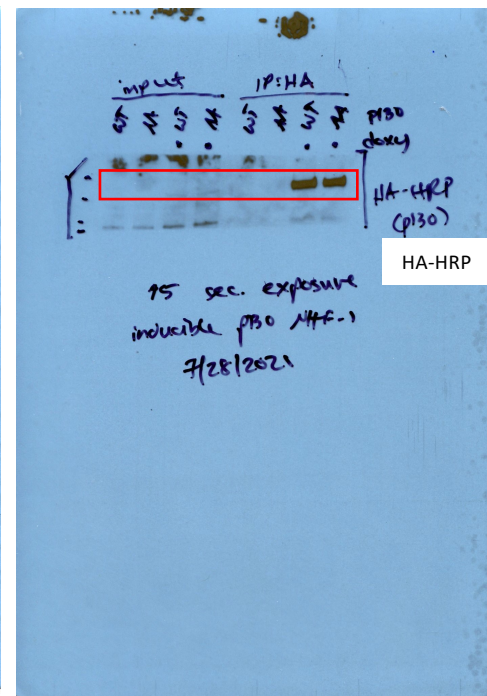 input IP:HA
WT WT WT WT p130
doxy
HA-HRP
(p130)
HA-HRP
15 sec. exposure
inducible p130 NHF-1
7/28/2021